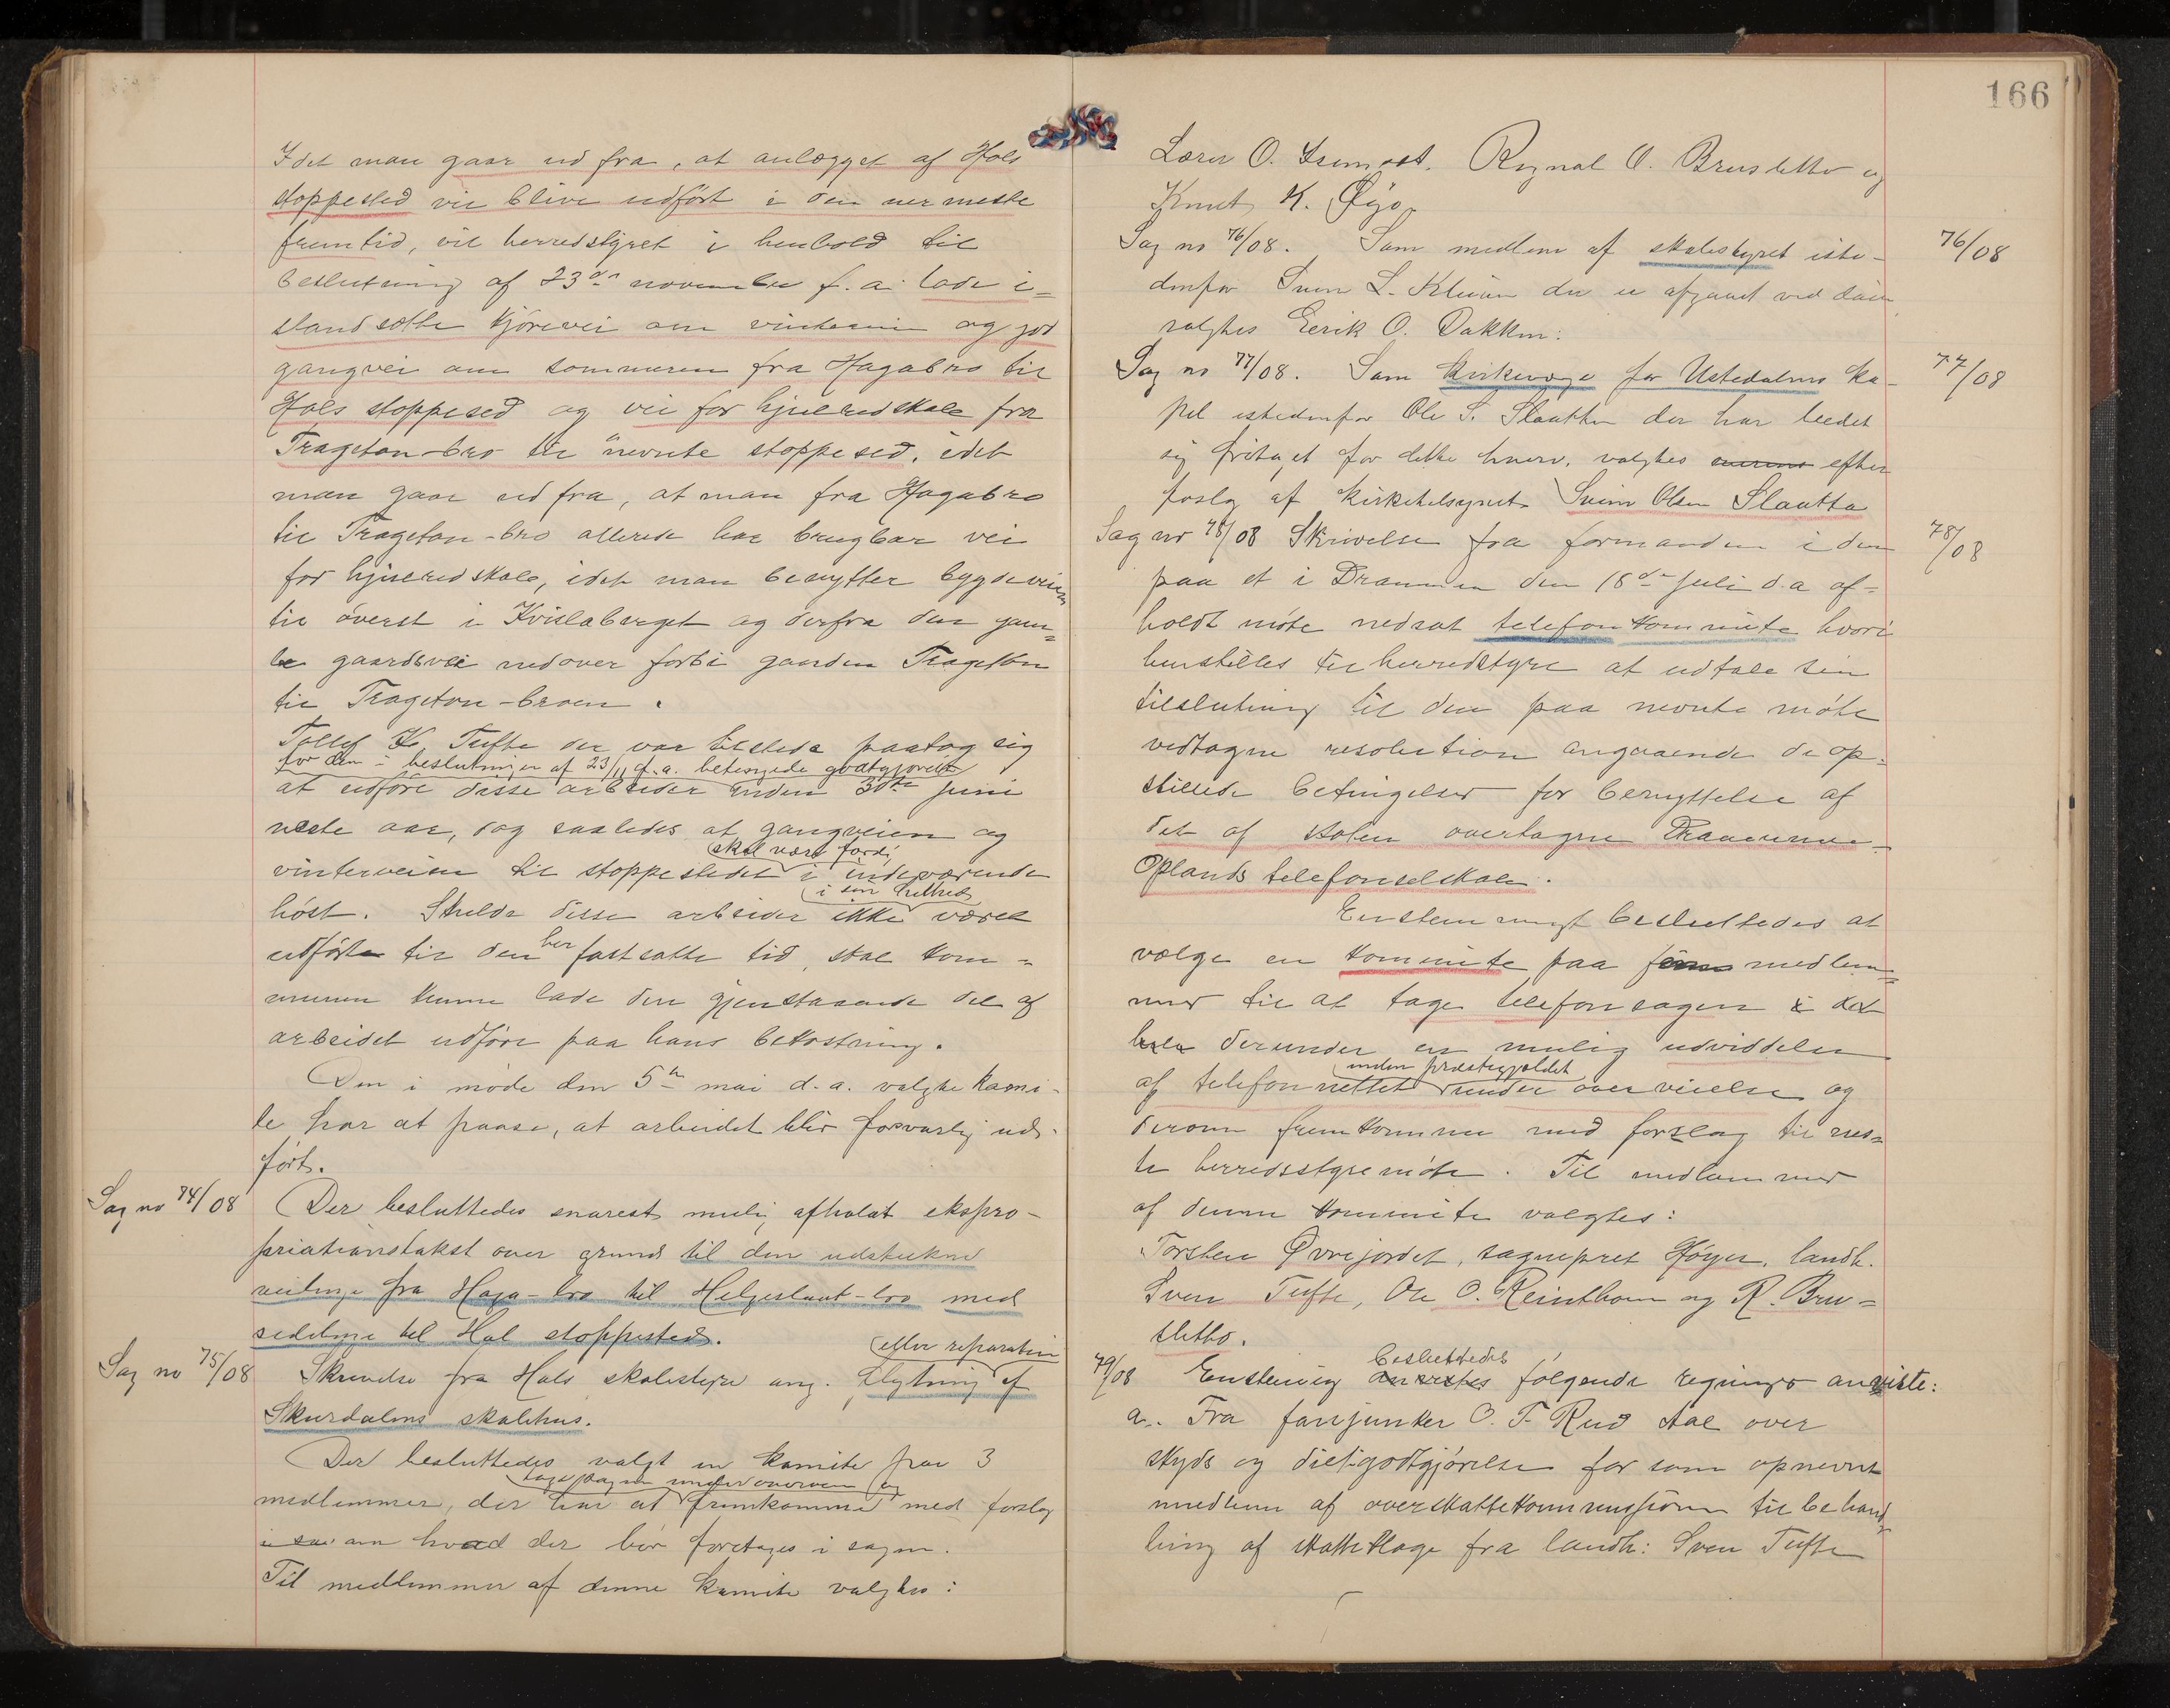 Idet man gaar ud fra, at anlægget af Hols
stoppested vil blive udført i den nermeste
fremtid, vil herredstyret i henhold til
beslutning af 23de november f.a. lade i=
standsætte kjørevei om vinteren og god
gangvei om sommeren fra Hagabro til
Hols stoppested og vei for hjulredskab fra
Trageton-bro til nevnte stoppested, idet
man gaar ud fra, at man fra Hagabro
til Trageton-bro allerede har brugbar vei
for hjulredskab, idet man benytter bygdeveien
til øverst i Kvislaberget og derfra den gam=
le gaardsvei nedover forbi gaarden Trageton
til Trageton-broen.
Tollef K. Tufte der var tilstede paatog sig
for den i beslutningen af 23/11 f.a. betingede godtgjørelse
at udføre disse arbeider inden 30te juni
neste aar, dog saaledes at gangveien og
skal være færdi
vinterveien til stoppestedet i indeværende
i sin helhed
høst. Skulde disse arbeider ikke være
udførte til den her fastsatte tid, skal kom=
munen kunne lade den gjenstaaende del af
arbeidet udføre paa hans bekostning.
Den i møde den 5te mai d.a. valgte komi-
te har at paase, at arbeidet blir forsvarlig ud-
ført.
Sag no 74/08 Der besluttedes snarest mulig afholdt ekspro-
priationstakst over grund til den udstukne
veilinje fra Haga-bro til Helgeslaat-bro med
sidelinje til Hol stoppested.
eller reparation
Sag no 75/08 Skrivelse fra Hols skolestyre ang. flytning af
Skurdalens skolehus.
Der besluttedes valgt en komite paa 3
tage sagen under overveielse og
medlemmer, der har at fremkomme med forslag
i sa om hvad der bør foretages i sagen.
Til medlemmer af denne komite valgtes:
166
Lærer O. Regnal O. Brusletto og
Knut K. Øyo.
Sag no 76/08. Som medlem af skolestyret iste- 76/08
denfor Sven L. der er afgaaet ved døden
valgtes Eerik O. Dokken:
Sag no 77/08. Som kirkeverge for Ustedalens ka- 77/08
pel istedenfor Ole S. Slaatten der har beedet
sig fritaget for dette hverv, valgtes efter
forslg af kirketilsynet Svein Olsen Slaatto
Sag no 78/08 Skrivelse fra formanden i den 78/08
paa et i Drammen den 18de juli d.a. af=
holdt møte nedsat telefonkommite hvori
henstilles til herredstyre at udtale sin
tilslutning til den paa nevnte møte
vedtagne resolution angaaende de op=
stillede betingelser for benyttelse af
det af staten overtagne Drammens-
Oplands telefonselskab.
Enstemmigt besluttedes at
vælge en kommite paa fem medlem=
mer til at tage telefonsagen i det
hele derunder en mulig udviddelse
inden prestegjeldet
af telefonnettet under overveielse og
derom fremkomme med forslag til nes=
te herredsstyremøte. Til medlemmer
af denne kommite valgtes:
Torsten Øvrejordet, sogneprest Høyer, landh.
Sven Tufte, Ole O. Reinthon og R. Bru=
sletto.
besluttedes
79/08 Enstemig anvistes følgende regninger anviste:
a. Fra fanejunker O. T. Rud Aal over
skyds og dietgodtgjørelse for som opnevnt
medlem af overskattekommissionen til behand=
ling af skatteklage fra landh: Sven Tufte